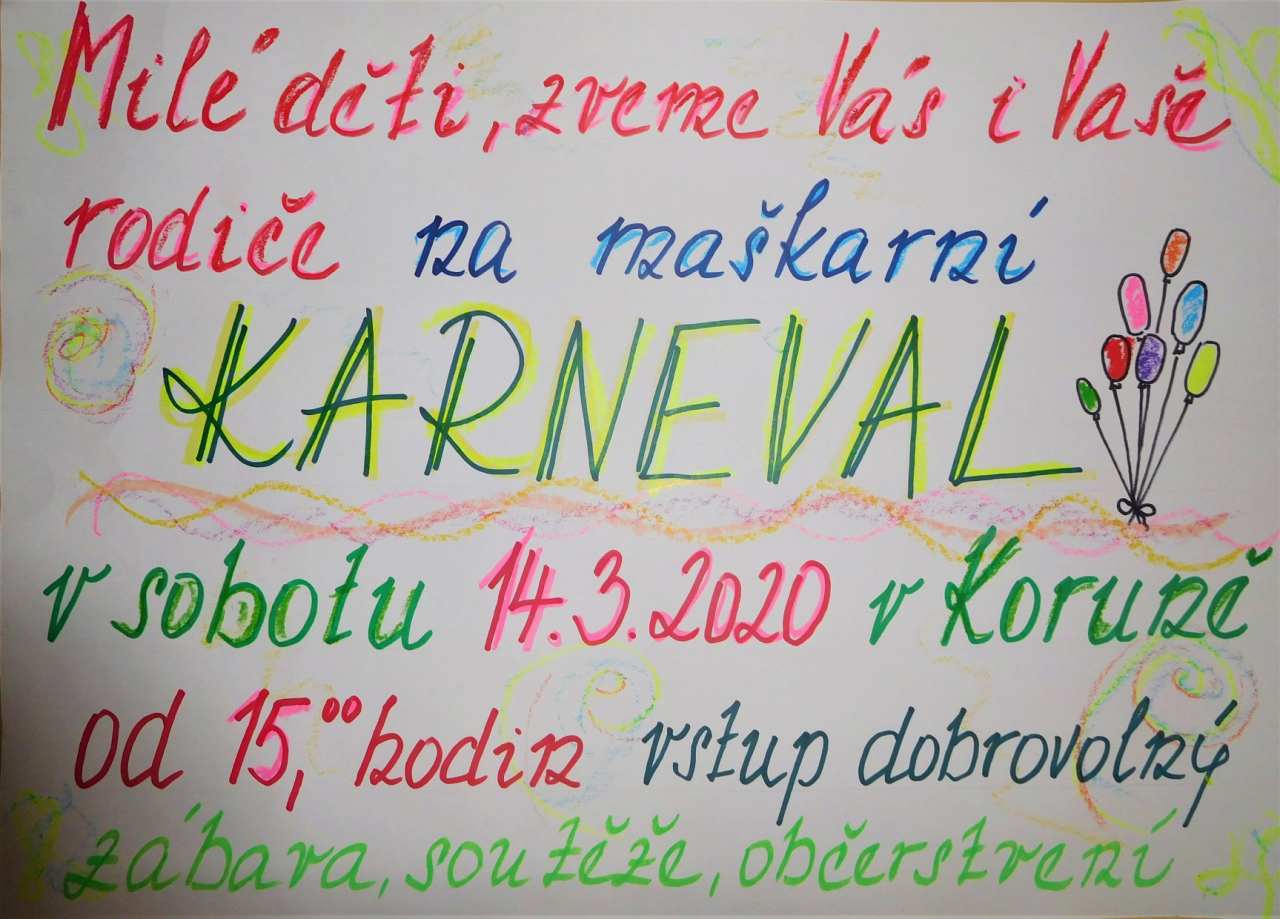 Milé děti, zveme Vás i Vaše
rodiče na maškarní
KARNEVAL
v sobotu 14.3.2020 v Koruně
od 15,00 hodin vstup dobrovolný
zábava, soutěže, občerstvení